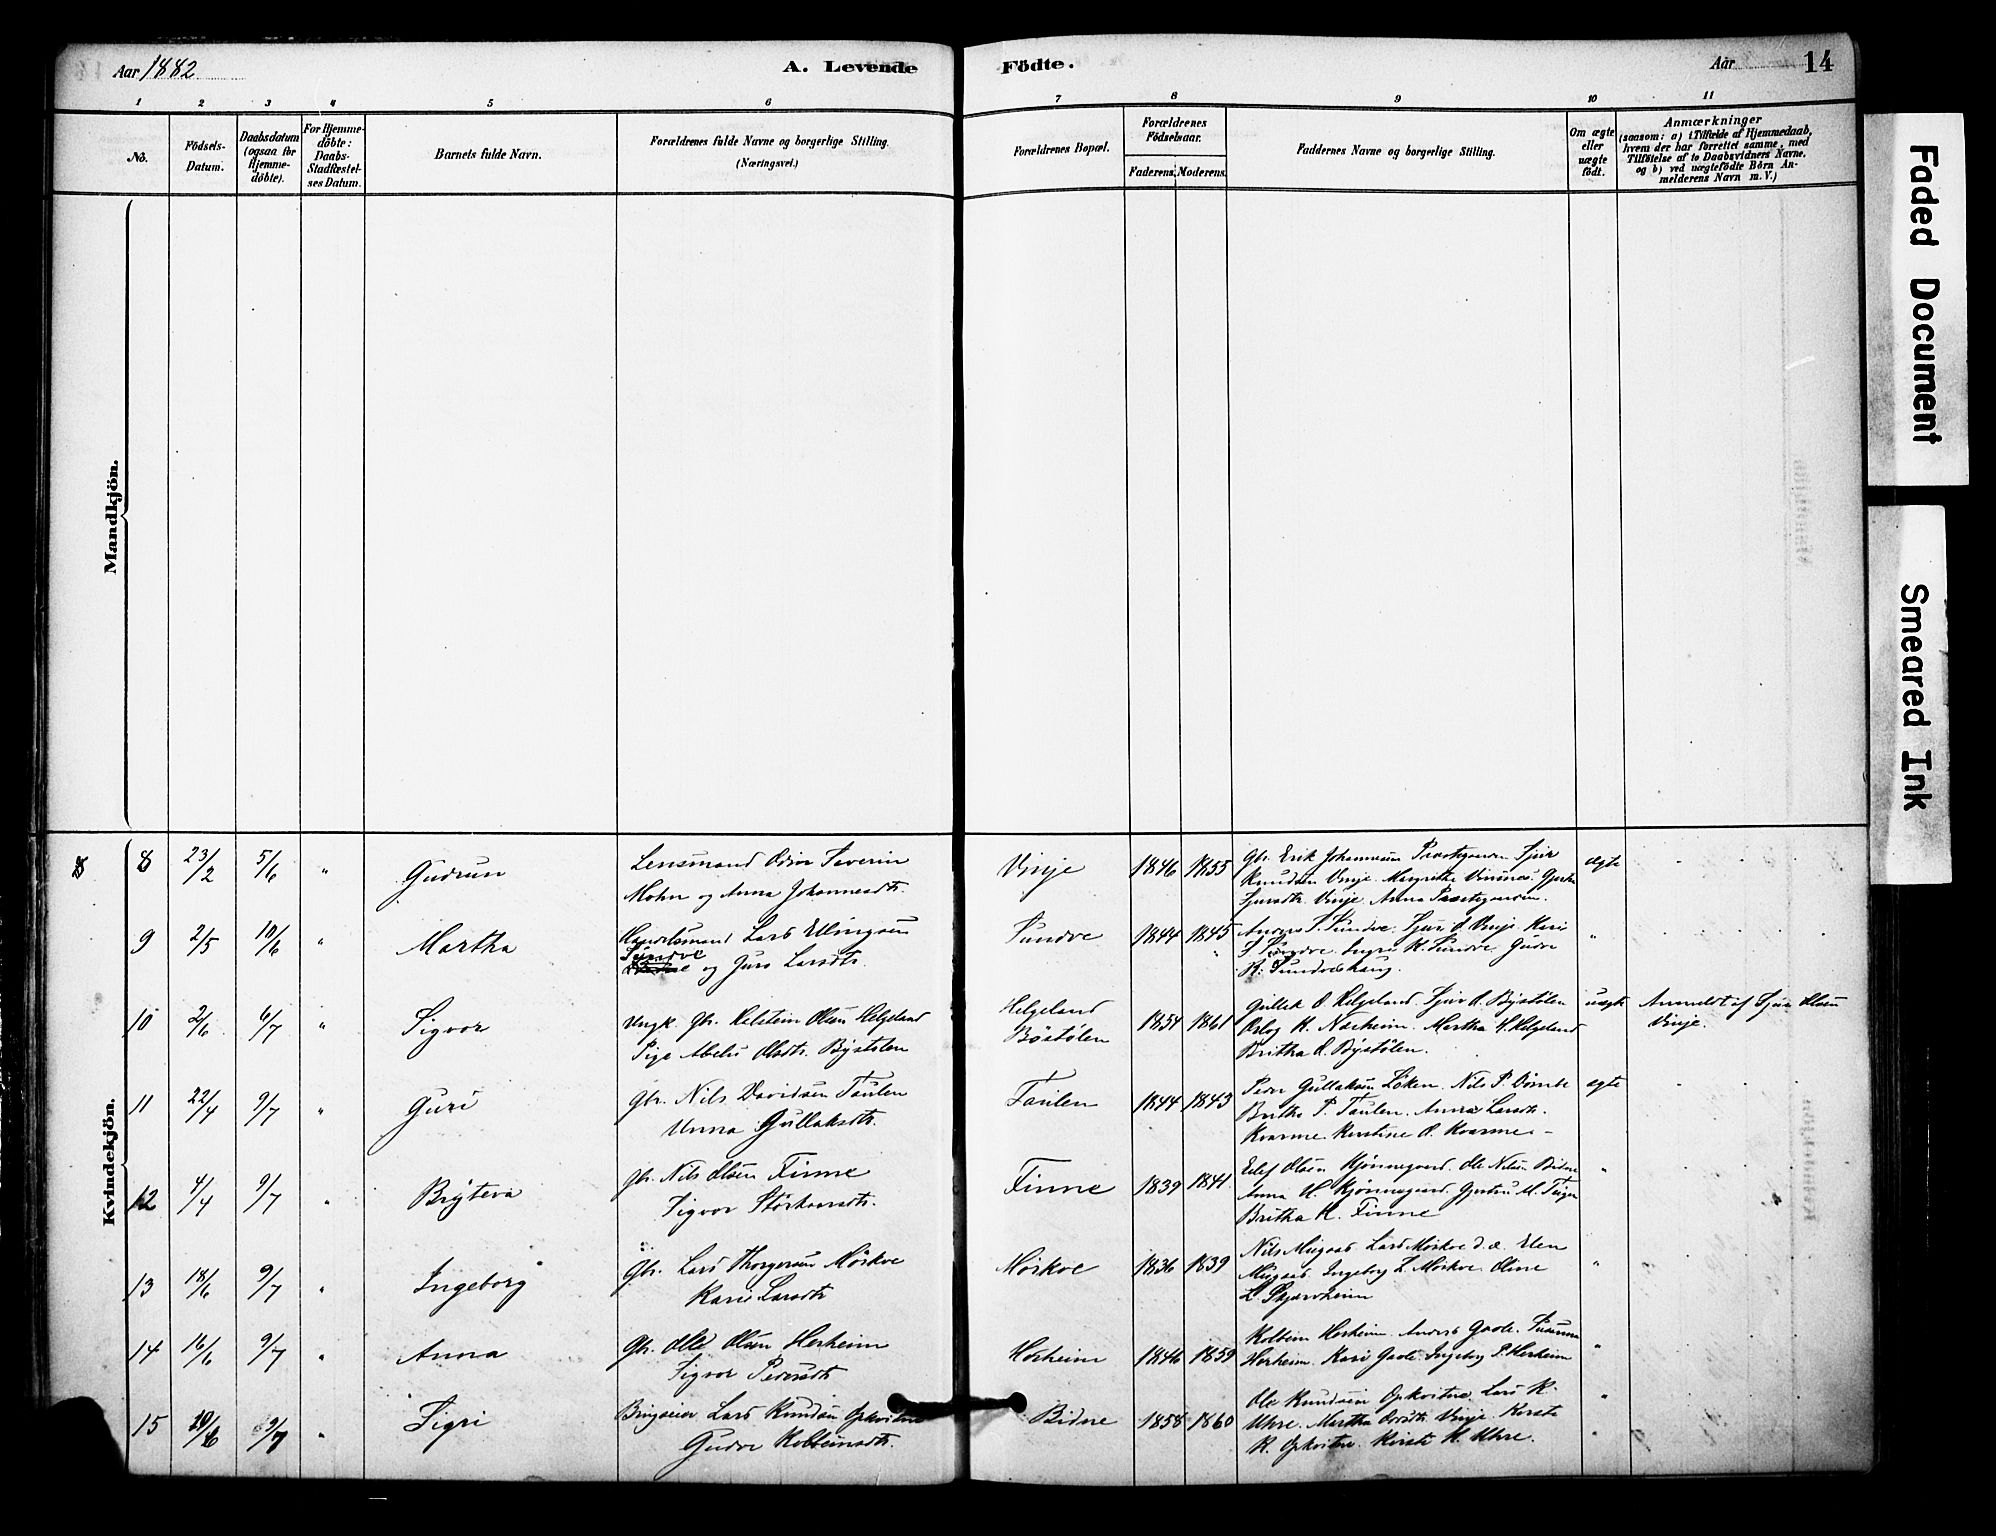 Aar 1882
A. Levende
Födte.
Aar
14
1 2 3 4 5 6 7 8 9 10 11
No.
Födsels-
Datum.
Daabsdatum
(ogsaa for
Hjemme-
döbte).
For Hjemme-
döbte:
Daabs-
Stadfæstel-
ses Datum.
Barnets fulde Navn.
Forældrenes fulde Navne og borgerlige Stilling.
(Næringsvei.)
Forældrenes Bopæl.
Forældrenes
Födselsaar.
Faderens. Moderens.
Faddernes Navne og borgerlige Stilling.
Om ægte
eller
uægte
födt.
Anmærkninger
(saasom: a) i Tilfælde af Hjemmedaab,
hvem der har forrettet samme, med
Tilföielse af to Daabsvidners Navne,
og b) ved uægtefödte Börn An-
melderens Navn m. V.)
Mandkjön.
Kvindekjön.
8 8 23/2 5/6 " Gudrun
Lensmand Severin
Mohn og Anna Johannesdtr.
Vinje 1846 1855
Gbr. Erik Johannesen Præstegaarden Sjur
Knudsen Vinje. Margrethe Vinsnes.
Sjursdtr. Vinje. Anna Præstegaarden.
ægte
9 2/5 10/6 " Martha
Handelsmand Lars Ellingsen
Sundve
og Guro Larsdtr.
Sundve 1844 1845
Anders S. Sundve. Sjur O. Vinje. Kari
S. Sundve. Ingri K. Sundve. Gudve
R. Sundvehaug.
"
10 2/6 6/7 " Sigvor
Ungk. Gbr. Helstein Olsen Helgeland
Pige Abelu Olsdtr. Bystølen
Helgeland
Bøstølen 1854 1861
Gullek O. Helgeland. Sjur O. Bystølen
Oslog K. Nærheim. Martha H. Helgeland
Britha O. Bystølen.
uægte
Anmeldt af Sjur Olsen
Vinje.
11 22/4 9/7 " Guri
Gbr. Nils Davidsen Taulen
Unna Gullaksdtr.
Taulen 1844 1843
Peder Gullaksen Løken. Nils P. Dømbe
Britha P. Taulen. Anna Larsdtr.
Kvarme. Kerstine O. Kvarme. -
ægte
12 4/4 9/7 " Bryteva
Gbr. Nils Olsen Finne
Sigvor Størkorsdtr.
Finne 1839 1841
Eilef Olsen Kjønnegaard. Ole Nilsen Bidne
Anna H. Kjønnegaard. Gjertru M.
Britha H. Finne
"
13 18/6 9/7 " Ingeborg
Gbr. Lars Thorgersen Mørkve
Kari Larsdtr
Mørkve 1836 1839
Nils Mugaas. Lars Mørkve d.e. Elen
Mugaas. Ingeborg L. Mørkve. Oline
L. Skjerveheim
"
14 16/6 9/7 " Anna
Gbr. Ole Olsen Herheim
Sigvor Pedersdtr
Herheim 1846 1859
Kolbein Herheim. Anders Gaode. Susanna
Herheim. Kari Gaode. Ingeborg P. Herheim
"
15 9/7 " Sigri
Brugseier Lars Knudsen Opkvitne
Gudve Kolbeinsdtr.
Bidne 1858 1860
Ole Knudsen Opkvitne. Lars K.
Uhre. Martha Vinje. Kerste
K. Opkvitne. Kirsti K. Uhre.
"
Faded Document
Smeared Ink